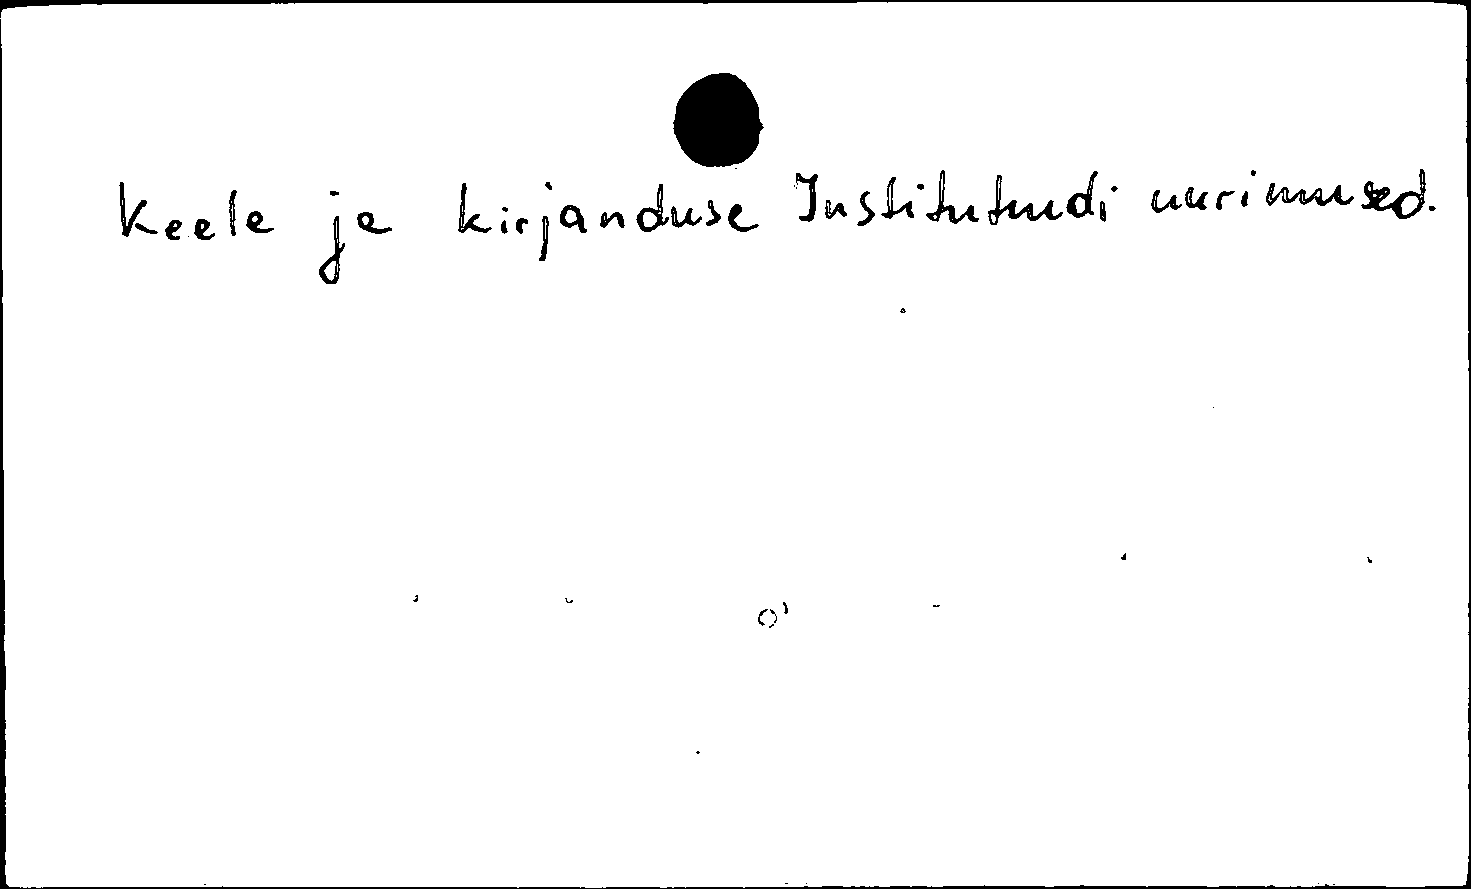 Keele ja kirjanduse Instituudi uurimused.